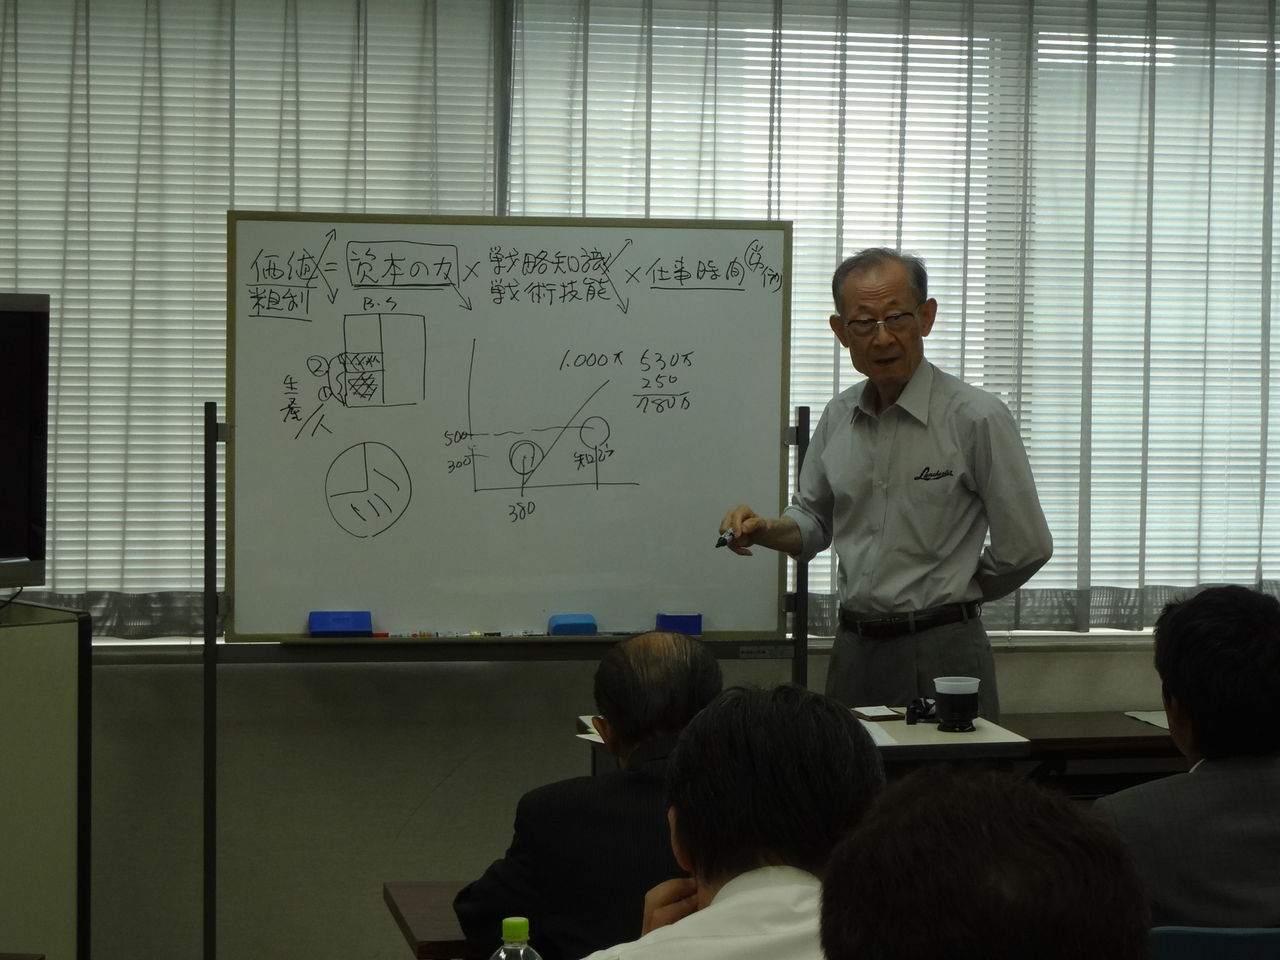 価値 = 資本の力 × 戦略知識 × 仕事時間 (労働)
粗利 戦術技能
B.S
②
①
生産/人
1.000万
530万
250
780万
500
300
知心
380
Lanchester